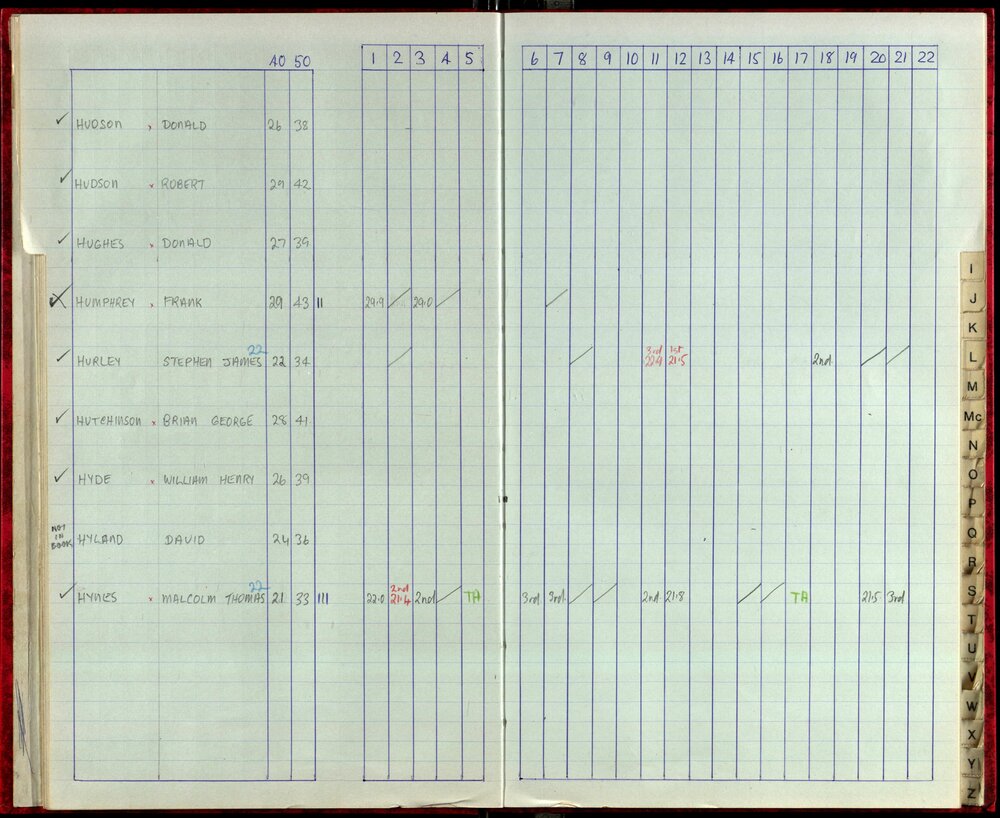 40 50 1 2 3 4 5 6 7 8 9 10 11 12 13 14 15 16 17 18 19 20 21 22
✓ HUDSON x DONALD 26 38
✓ HUDSON x ROBERT 29 42
✓ HUGHES x DONALD 27 39
HUMPHREY x FRANK 29 43 II 29.9 / 29.0 / /
22 3rd 1st
✓ HURLEY STEPHEN JAMES 22 34 / / 22.9 21.5 2nd / /
✓ HUTCHINSON x BRIAN GEORGE 28 41
✓ HYDE x WILLIAM HENRY 26 39
NOT
IN
BOOK HYLAND DAVID 24 36
22 2nd
✓ HYNES x MALCOLM THOMAS 21 33 III 22.0 21.4 2nd / TA 3rd 3rd / / 2nd 21.8 / / TA 21.5 3rd
I
J
K
L
M
Mc
N
O
P
Q
R
S
T
U
V
W
X
Y
Z